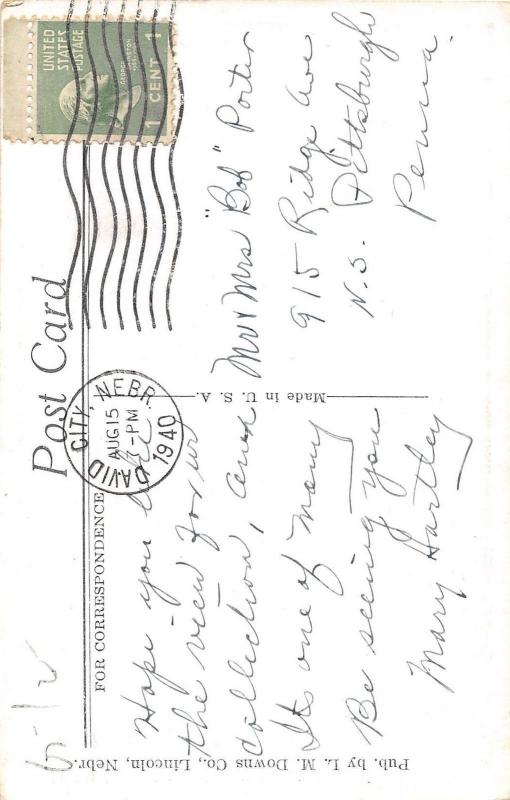 Post Card
FOR CORRESPONDENCE
UNITED STATES POSTAGE
1 CENT 1
DAVID CITY, NEBR.
AUG 15
3-PM
1940
Hope you like
the view for ur
collection, and
Its one of many
Be seeing you
Mary Hartley
Mr & Mrs "Bob" Porter
915 Ridge Ave
N.S. Pittsburgh
Penna.
Made in U. S. A.
Pub. by L. M. Downs Co., Lincoln, Nebr.